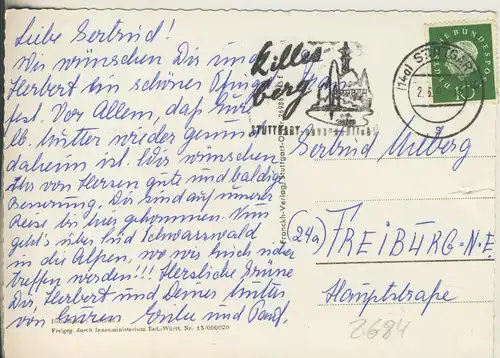 Liebe Gertrud!
Wir wünschen Dir und
Herbert ein schönes Pfingst-
fest. Vor Allem, daß Eure
lb. Mutter wieder gesund
daheim ist. Wir wünschen
Ihr von Herzen gute und baldige
Besserung. Wir sind auf unserer
Reise bis hier gekommen. Nun
geht's über Schwarzwald
in die Alpen, wo wir
treffen werden!!! Herzliche Grüße
Dir, Herbert und Deiner Mutter
von Euren und
Freigeg. durch Innenministerium Bad.-Württ. Nr. 15/000020
Franckh-Verlag, Stuttgart-O
killes
berg
STUTTGART
(14a) STUTTGART
DEUTSCHE BUNDESPOST
10
Gertrud
(24a) FREIBURG-N.E.
Hauptstraße
2684